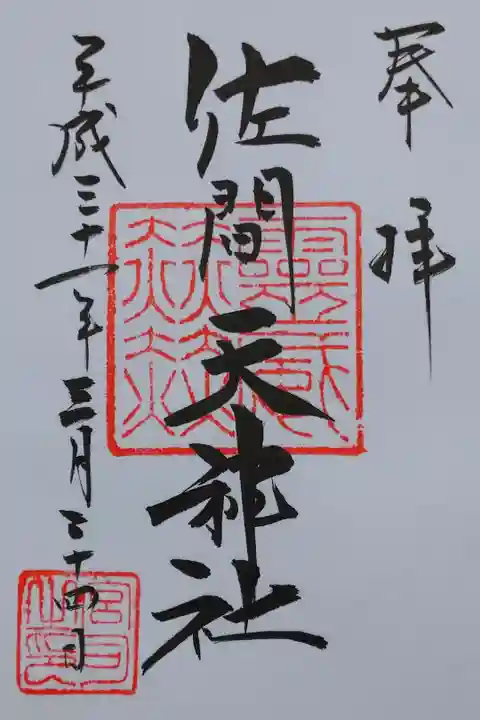 奉拝
佐間天神社
平成三十一年三月二十四日